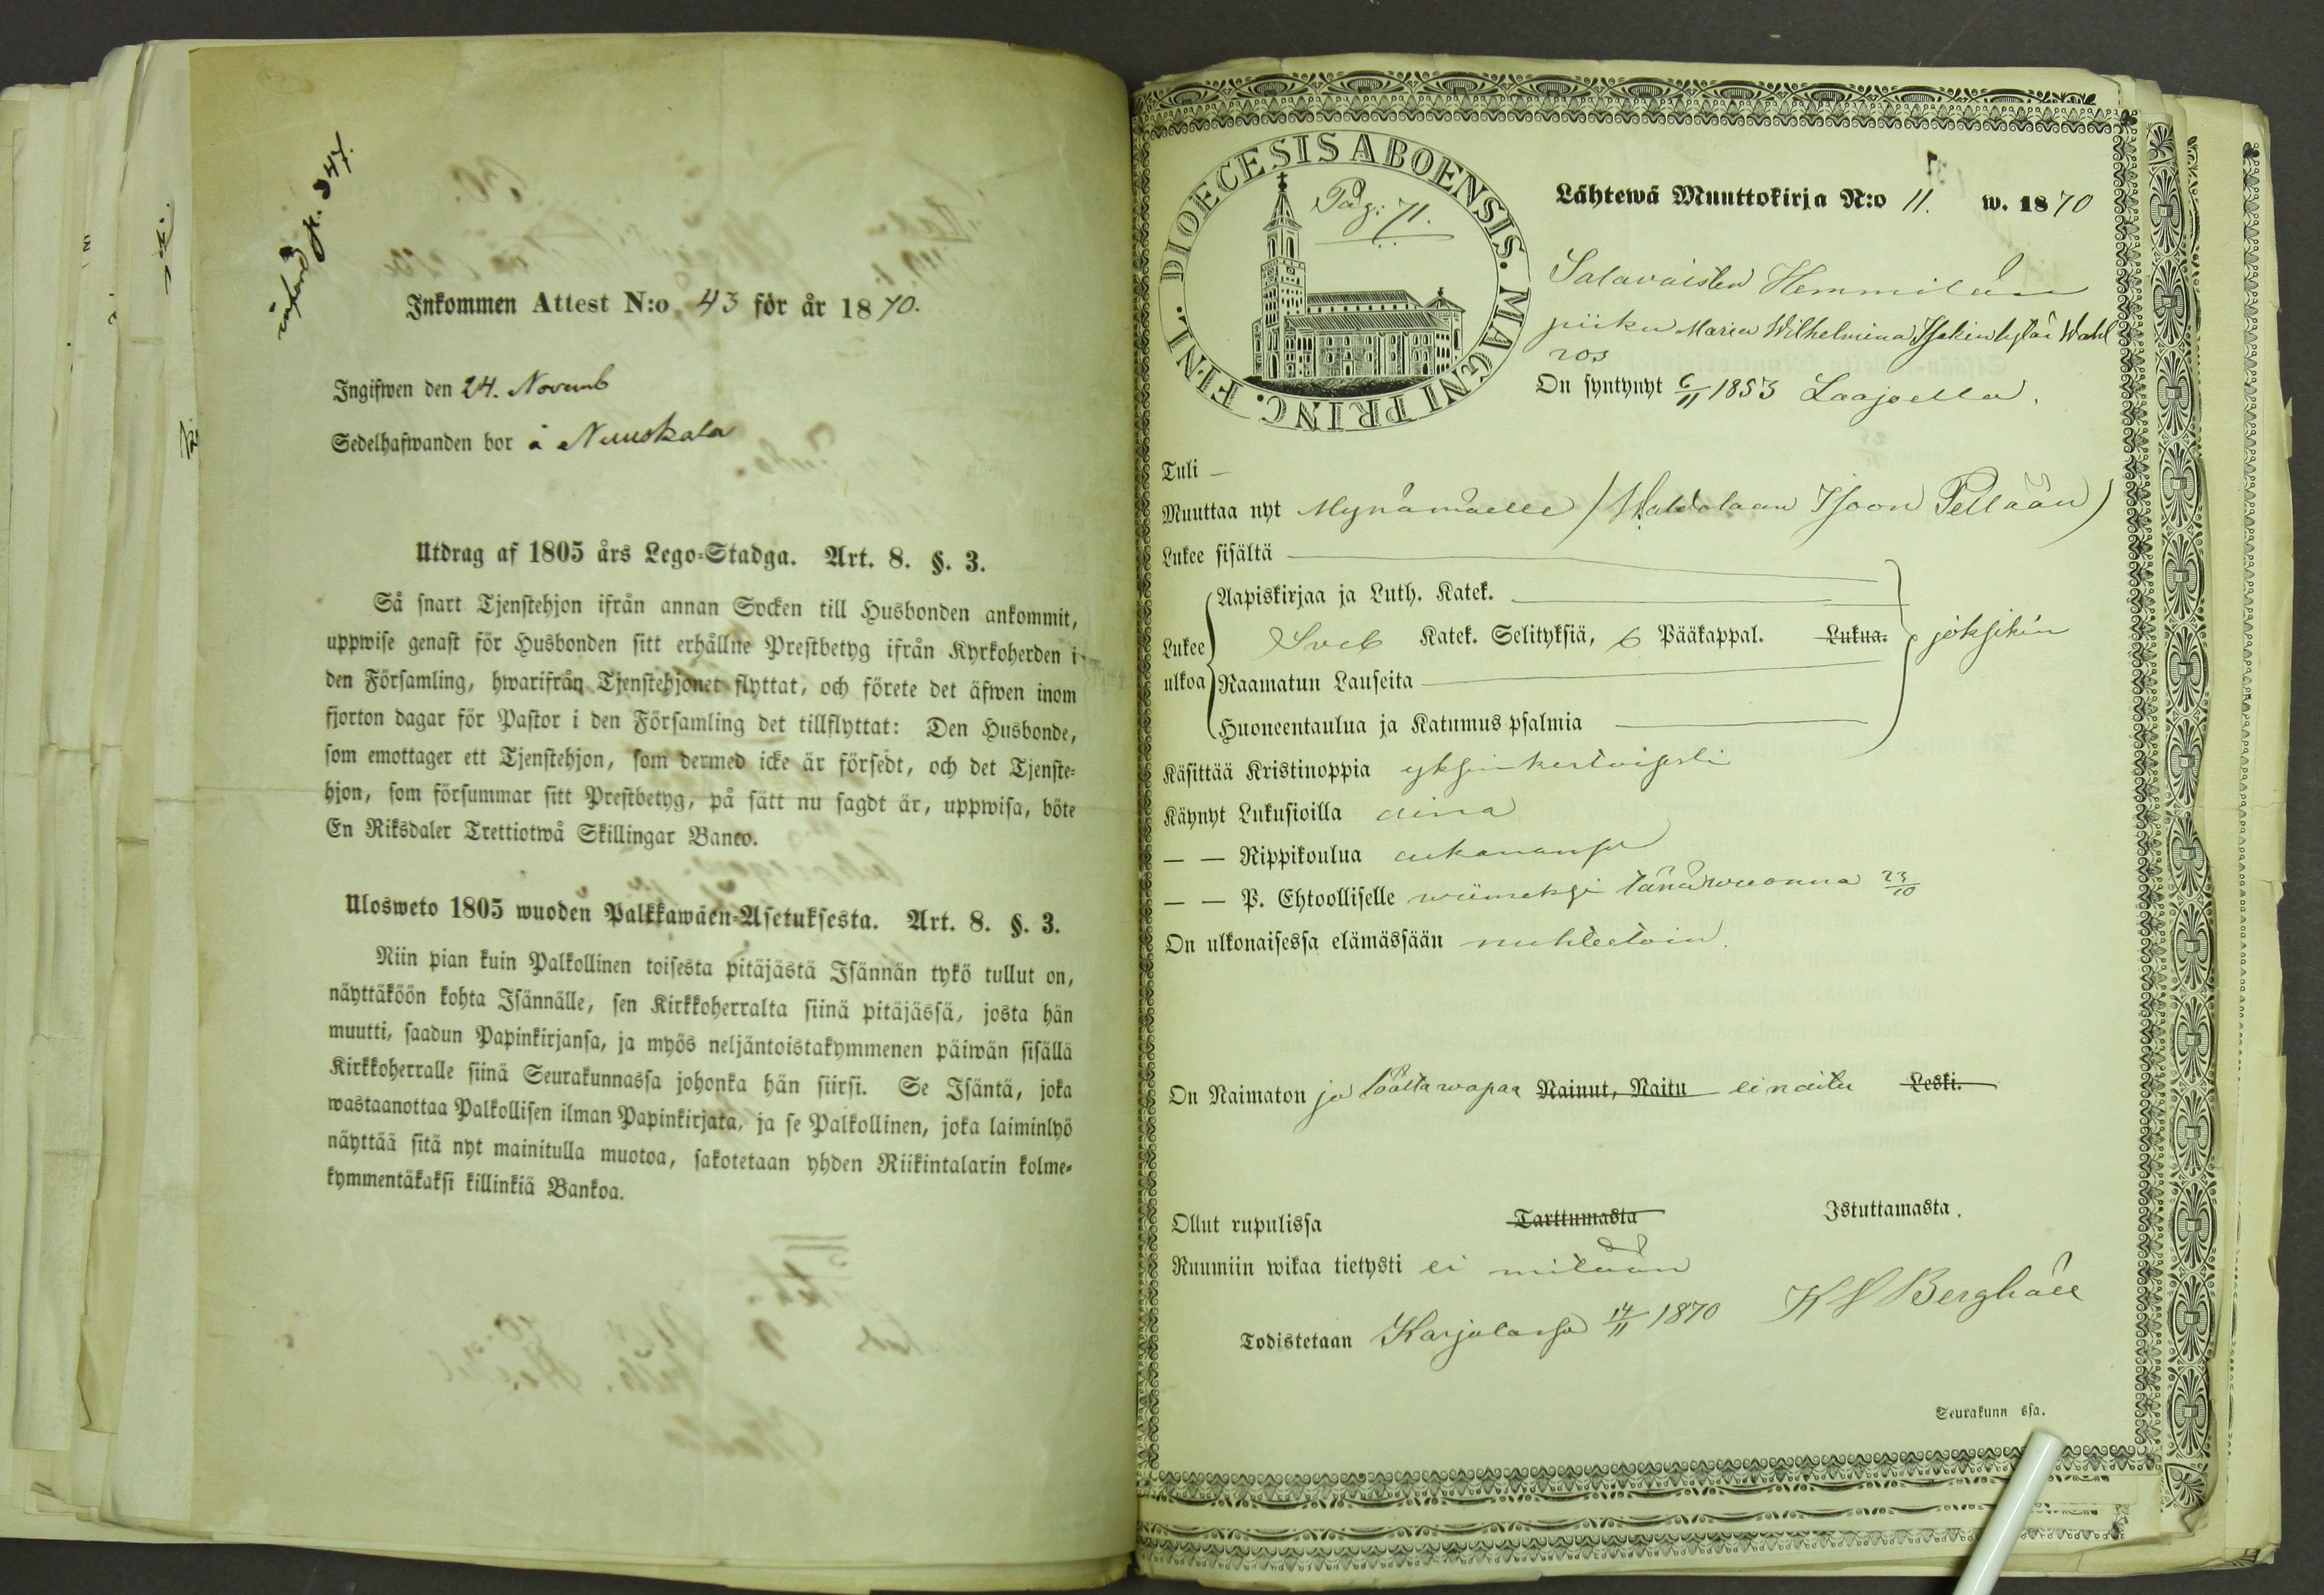 införd p. 347.
Inkommen Attest N:o 43 för år 1870.
Ingifwen den 24. Novemb
Sedelhafwanden bor å Nuuskala
Utdrag af 1805 års Lego-Stadga. Art. 8. §. 3.
Så snart Tjenstehjon ifrån annan Socken till Husbonden ankommit,
uppwise genast för Husbonden sitt erhållne Prestbetyg ifrån Kyrkoherden i
den Församling, hwarifrån Tjenstehjonet flyttat, och förete det äfwen inom
fjorton dagar för Pastor i den Församling det tillflyttat: Den Husbonde,
som emottager ett Tjenstehjon, som dermed icke är försedt, och det Tjenste-
hjon, som försummar sitt Prestbetyg, på sätt nu sagdt är, uppwisa, böte
En Riksdaler Trettiotwå Skillingar Banco.
Ulosweto 1805 wuoden Palkkawäen-Asetuksesta. Art. 8. §. 3.
Niin pian kuin Palkollinen toisesta pitäjästä Isännän tykö tullut on,
näyttäköön kohta Isännälle, sen Kirkkoherralta siinä pitäjässä, josta hän
muutti, saadun Papinkirjansa, ja myös neljäntoistakymmenen päiwän sisällä
Kirkkoherralle siinä Seurakunnassa johonka hän siirsi. Se Isäntä, joka
wastaanottaa Palkollisen ilman Papinkirjata, ja se Palkollinen, joka laiminlyö
näyttää sitä nyt mainitulla muotoa, sakotetaan yhden Riikintalarin kolme-
kymmentäkaksi killinkiä Bankoa.
DIOECESIS ABOENSIS. MAGNI PRINC. FINL.
Pag: 71.
Lähtewä Muuttokirja N:o 11. w. 1870
Salavaisten Hemmilän
piika Maria Wilhelmina Isakintytär Wahl
ros
On syntynyt 6/11 1853 Laajoella.
Tuli —
Muuttaa nyt Mynämäelle (Waldolaan Isoon Pellään)
Lukee sisältä
Aapiskirjaa ja Luth. Katek.
Lukee ulkoa
Sveb Katek. Selityksiä, 6 Pääkappal. Lukua. joksikin
Raamatun Lauseita
Huoneentaulua ja Katumus psalmia
Käsittää Kristinoppia yksinkertaisesti
Käynyt Lukusioilla aina
— — Rippikoulua aikanansa
— — P. Ehtoolliselle wiimeksi tänä wuonna 23/10
On ulkonaisessa elämässään nuhteetoin.
On Naimaton ja wapaa Nainut, Naitu ei naitu Leski.
Ollut rupulissa Tarttumasta Istuttamasta.
Ruumiin wikaa tietysti ei mitään
Todistetaan Karjalassa 14/11 1870 K Berghäll
Seurakunn ssa.